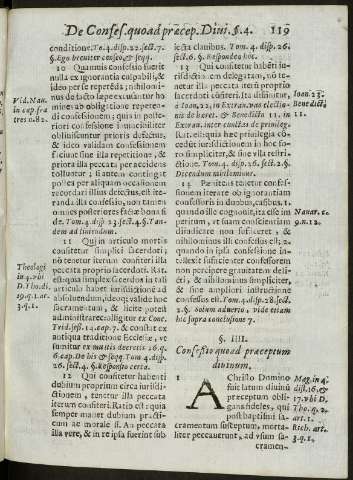 De Confes. quoad præcep. Divi. §. 4. 119
conditione. To. 4. disp. 22. sect. 7.
§. Ego breviter censeo, & seqq.
10 Quamvis confessio fuerit
nulla ex ignorantia culpabili, &
ideo per se repetēda; nihilominus
de facto sæpe excusatur homines
ab obligatione repetendi
confessionem; quia in posteriori
confessione immaculabiliter
obliviscuntur prioris defectus,
& ideo validam confessionem
ficiunt sine illa repetitione, &
priora illa peccata per accidens
tolluntur; si autem contingat
postea per aliquam occasionem
recordari illius defectus, est iteranda
illa confessio, non tamen
omnes posteriores factæ bona fide.
Tom. 4. disp. 23. sect. 4. §. Tandem
advertendum.
11 Qui in articulo mortis
confitetur simplici Sacerdoti;
nō tenetur iterum confiteri illa
peccata proprio sacerdoti. Ratio
est quia simplex Sacerdos in tali
articulo habet iurisdictionem ad
absolvendum, ideoq; valide hoc
sacramentum, & licite poterit
administrare: colligitur ex Conc.
Trid. sess. 14. cap. 7. & constat ex
antiqua traditione Ecclesiæ, ve
sumitur ex multis decretis 26. q.
6. cap. De his & seqq. Tom. 4. disp.
26. sect. 4. §. Respondeo certa.
12 Qui confitetur habenti
dubium proprium circa iurisdictionem,
tenetur illa peccata
iterum confiteri. Ratio est quia
semper manet dubium practicum
ac morale si. An peccata
illa vere, & in re ipsa fuerint sub
Vid. Nau.
in cap. fratres
n. 82.
Theologi
in 4. vbi
D. Tho. di.
19. q. 1. ar.
3. q. 1.
iecta clavibus. Tom. 4. disp. 26.
sect. 6. §. Respondeo hoc.
13 Qui confitetur habēti iurisdictionem
delegatam, nō tenetur
illa peccata iterū proprio
sacerdoti cōfiteri. Ita definitur,
à Ioan. 22. in Extrav. vas electionis
de hæret. & Benedicto 11. in
Extrav. inter cunctas de privileg.
Rat. est; quia hæc privilegia concedūt
iurisdictionem in hoc foro
simpliciter, & sine vlla restrictione.
Tom. 4. disp. 26. sect. 2. §.
Dicendum nihilominus.
14 Pœnitens tenetur confessionem
iterare ob ignorantiam
confessoris in duobus casibus. 1.
quando ille cognoivit, ita esse imperitum,
vt suam conscientiam
iudicaret non esse securam; &
nihilominus illi confessus est: 2.
quando in ipsa confessione intellexit
sufficienter confessorem
non percipere gravitatem delicti,
& nihilominus simpliciter,
& sine ampliori instructione illi
confessus est. Tom. 4. disp. 28. sect.
2. §. Solum adverto, vide etiam
hoc supra conclusione 7.
Ioan. 23.
Benedict.
11.
Navar. c.
9. n. 12.
§. IIII.
Confessio quoad præceptum
divinum.
1 A Christo Domino
fuit latum divinū
præceptum obligans
fideles, qui
post baptismi sacramentum
susceptum, mortaliter
peccaverunt, ad vsum sacramen-
Mag. in 4.
dist. 16. &
17. vbi D.
Tho. q. 2.
art. 1.
Rich. art.
3. q. 1.